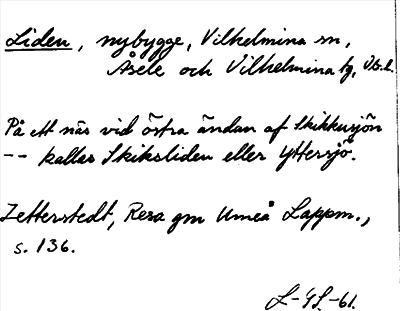 Liden, nybygge, Vilhelmina sn,
Åsele och Vilhelmina tg, Vb.l.
På ett näs vid östra ändan af Skikkusjön
-- kallas Skiksliden eller Yttersjö.
Zetterstedt, Resa gm Umeå Lappm.,
s. 136.
L-GS.-61.